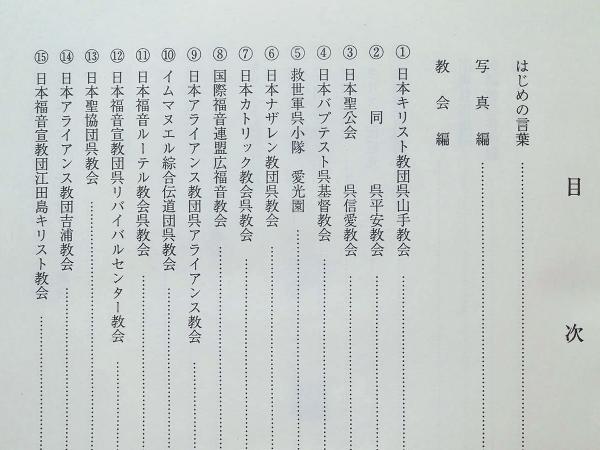 目次
はじめの言葉
写真編
教会編
① 日本キリスト教団呉山手教会
② 同 呉平安教会
③ 日本聖公会 呉信愛教会
④ 日本バプテスト呉基督教会
⑤ 救世軍呉小隊 愛光園
⑥ 日本ナザレン教団呉教会
⑦ 日本カトリック教会呉教会
⑧ 国際福音連盟広福音教会
⑨ 日本アライアンス教団呉アライアンス教会
⑩ イムマヌエル綜合伝道団呉教会
⑪ 日本福音ルーテル教会呉教会
⑫ 日本福音宣教団呉リバイバルセンター教会
⑬ 日本聖協団呉教会
⑭ 日本アライアンス教団吉浦教会
⑮ 日本福音宣教団江田島キリスト教会